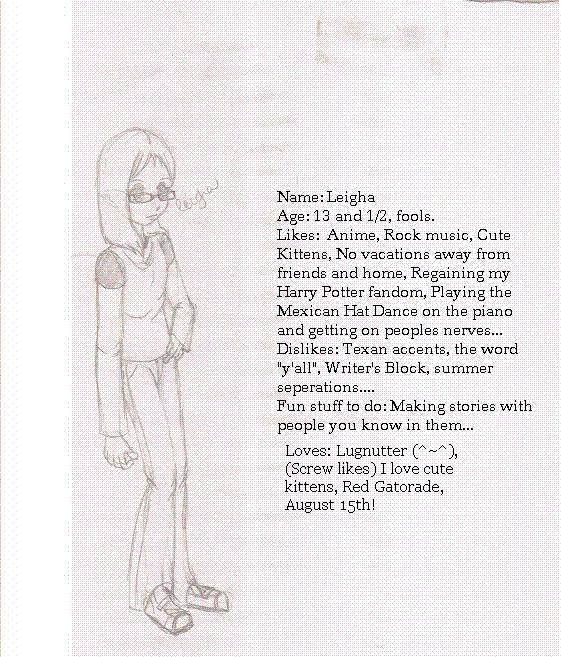 Name: Leigha
Age: 13 and 1/2, fools.
Likes: Anime, Rock music, Cute
Kittens, No vacations away from
friends and home, Regaining my
Harry Potter fandom, Playing the
Mexican Hat Dance on the piano
and getting on peoples nerves...
Dislikes: Texan accents, the word
"y'all", Writer's Block, summer
seperations....
Fun stuff to do: Making stories with
people you know in them...
Loves: Lugnutter (^~^),
(Screw likes) I love cute
kittens, Red Gatorade,
August 15th!